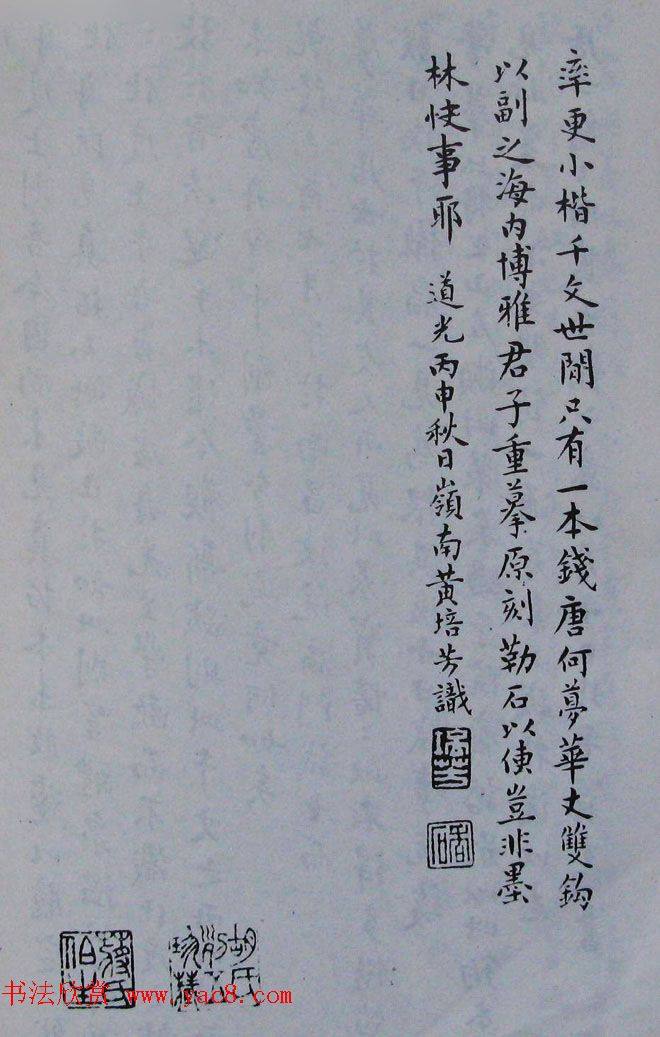 率更小楷千文世間只有一本錢唐何夢華丈雙鉤
以副之海內博雅君子重摹原刻勒石以傳豈非墨
林快事耶 道光丙申秋日嶺南黃培芳識
培芳
香石
书法欣赏 www.yac8.com